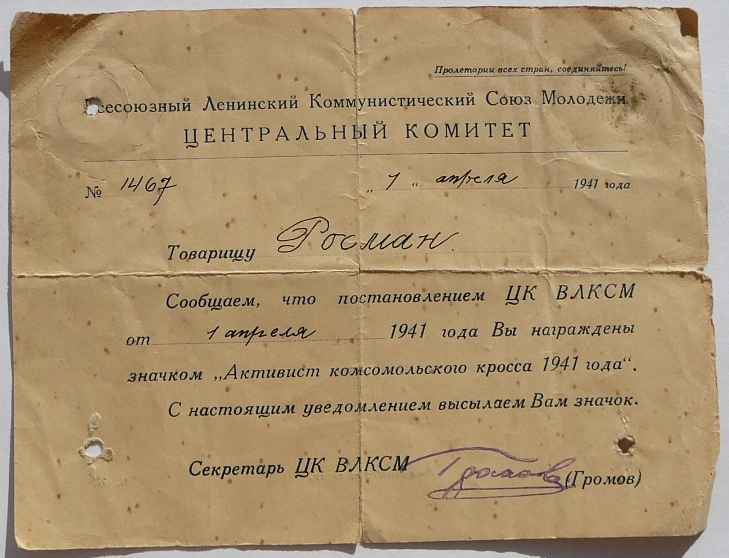 Пролетарии всех стран, соединяйтесь!
Всесоюзный Ленинский Коммунистический Союз Молодежи
ЦЕНТРАЛЬНЫЙ КОМИТЕТ
№ 1467 „ 1 “ апреля 1941 года
Товарищу Росман.
Сообщаем, что постановлением ЦК ВЛКСМ
от 1 апреля 1941 года Вы награждены
значком „Активист комсомольского кросса 1941 года“.
С настоящим уведомлением высылаем Вам значок.
Секретарь ЦК ВЛКСМ Громова (Громов)